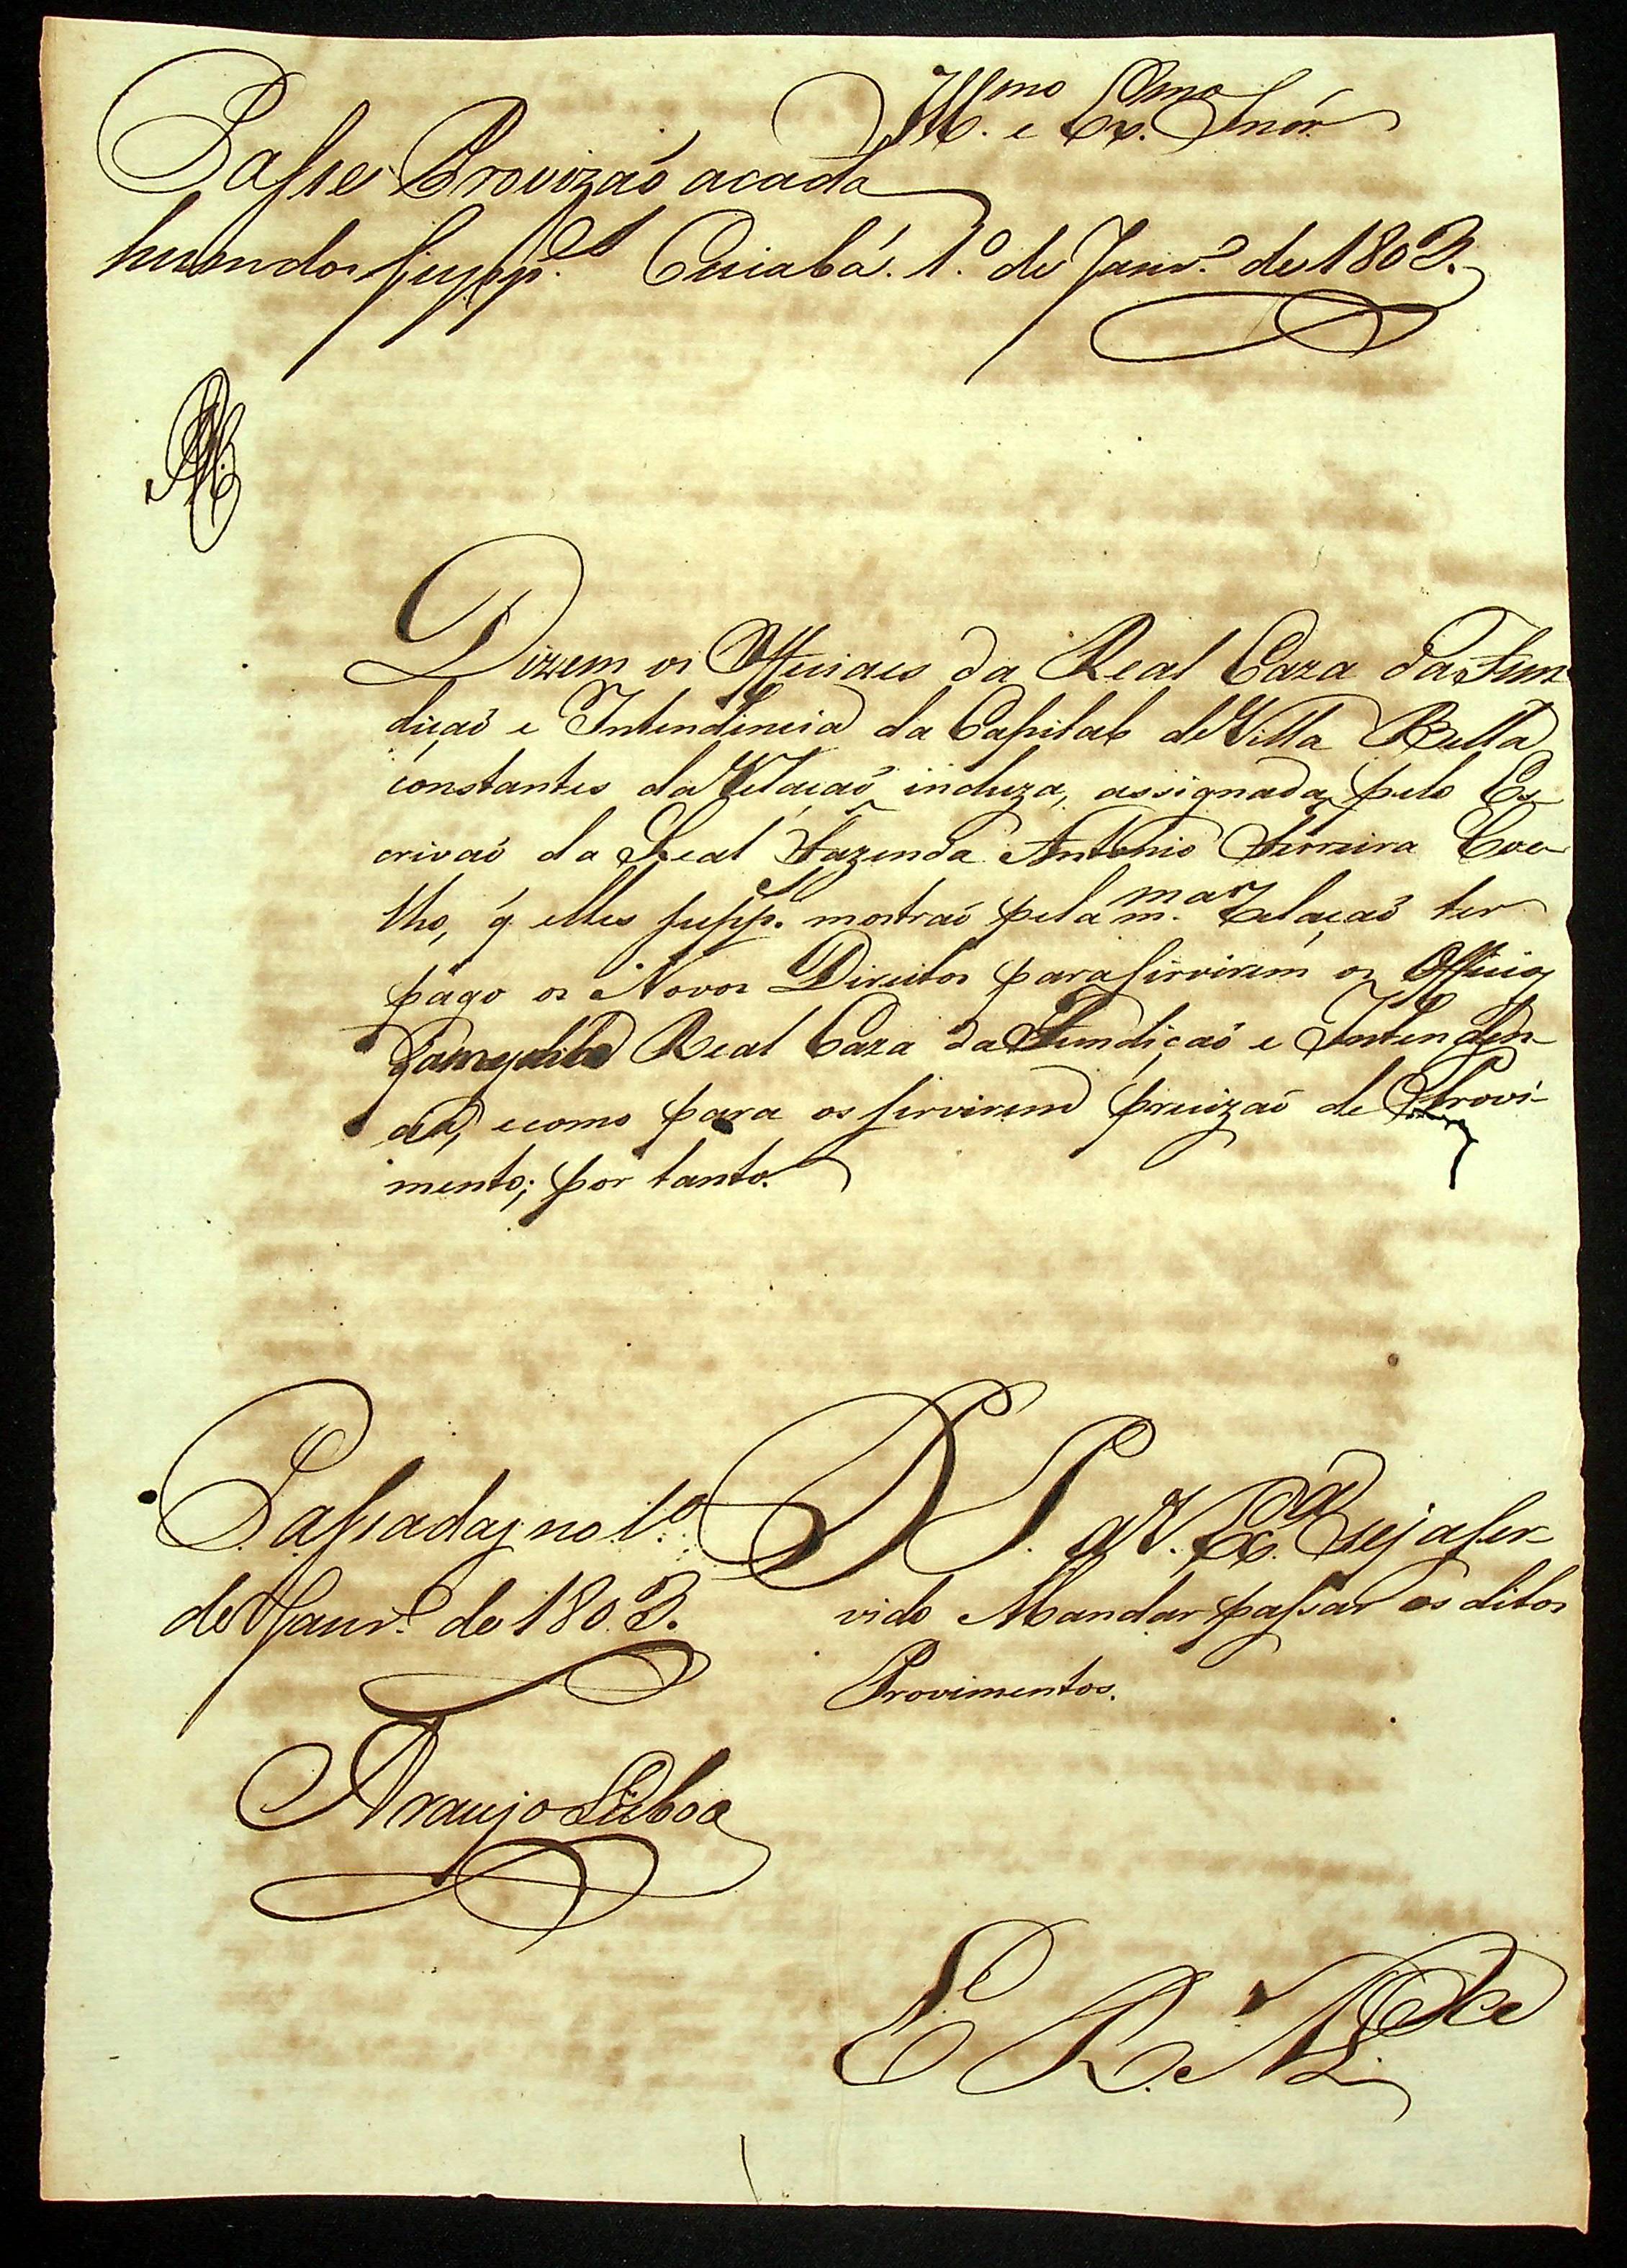 Ill.mo e Ex.mo Snór
Passe Provizaõ acada
hum dos Supp.es Cuiabá. 1.º de Janr.º de 1803.
Dizem os Officiaes da Real Caza da Fun
diçaõ e Intendencia da Capital de Villa Bella
constantes da Relaçaõ incluza, assignada pelo Es
crivaõ da Real Fazenda Antonio Ferreira Coe
lho, q̃ elles supp.es mostraõ pela m.ma Relaçaõ ter
pago os Novos Direitos para servirem os Officios
Real Caza da Fundiçaõ e Intenden
cia, ecomo para os servirem precizaõ de Provi-
mento; por tanto.
P. a V. Ex.ca seja ser-
vido Mandar passar os ditos
Provimentos.
Passadas no 1.º
de Janr.º de 1803.
Araujo Lisboa
E. R. M.ce